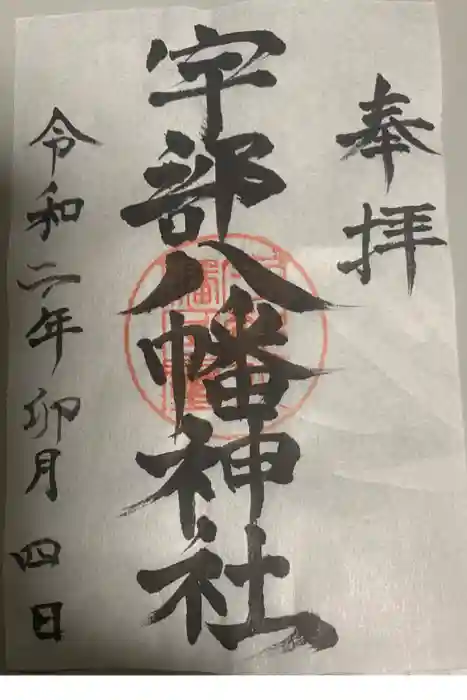 奉拝
宇部八幡神社
令和二年卯月四日